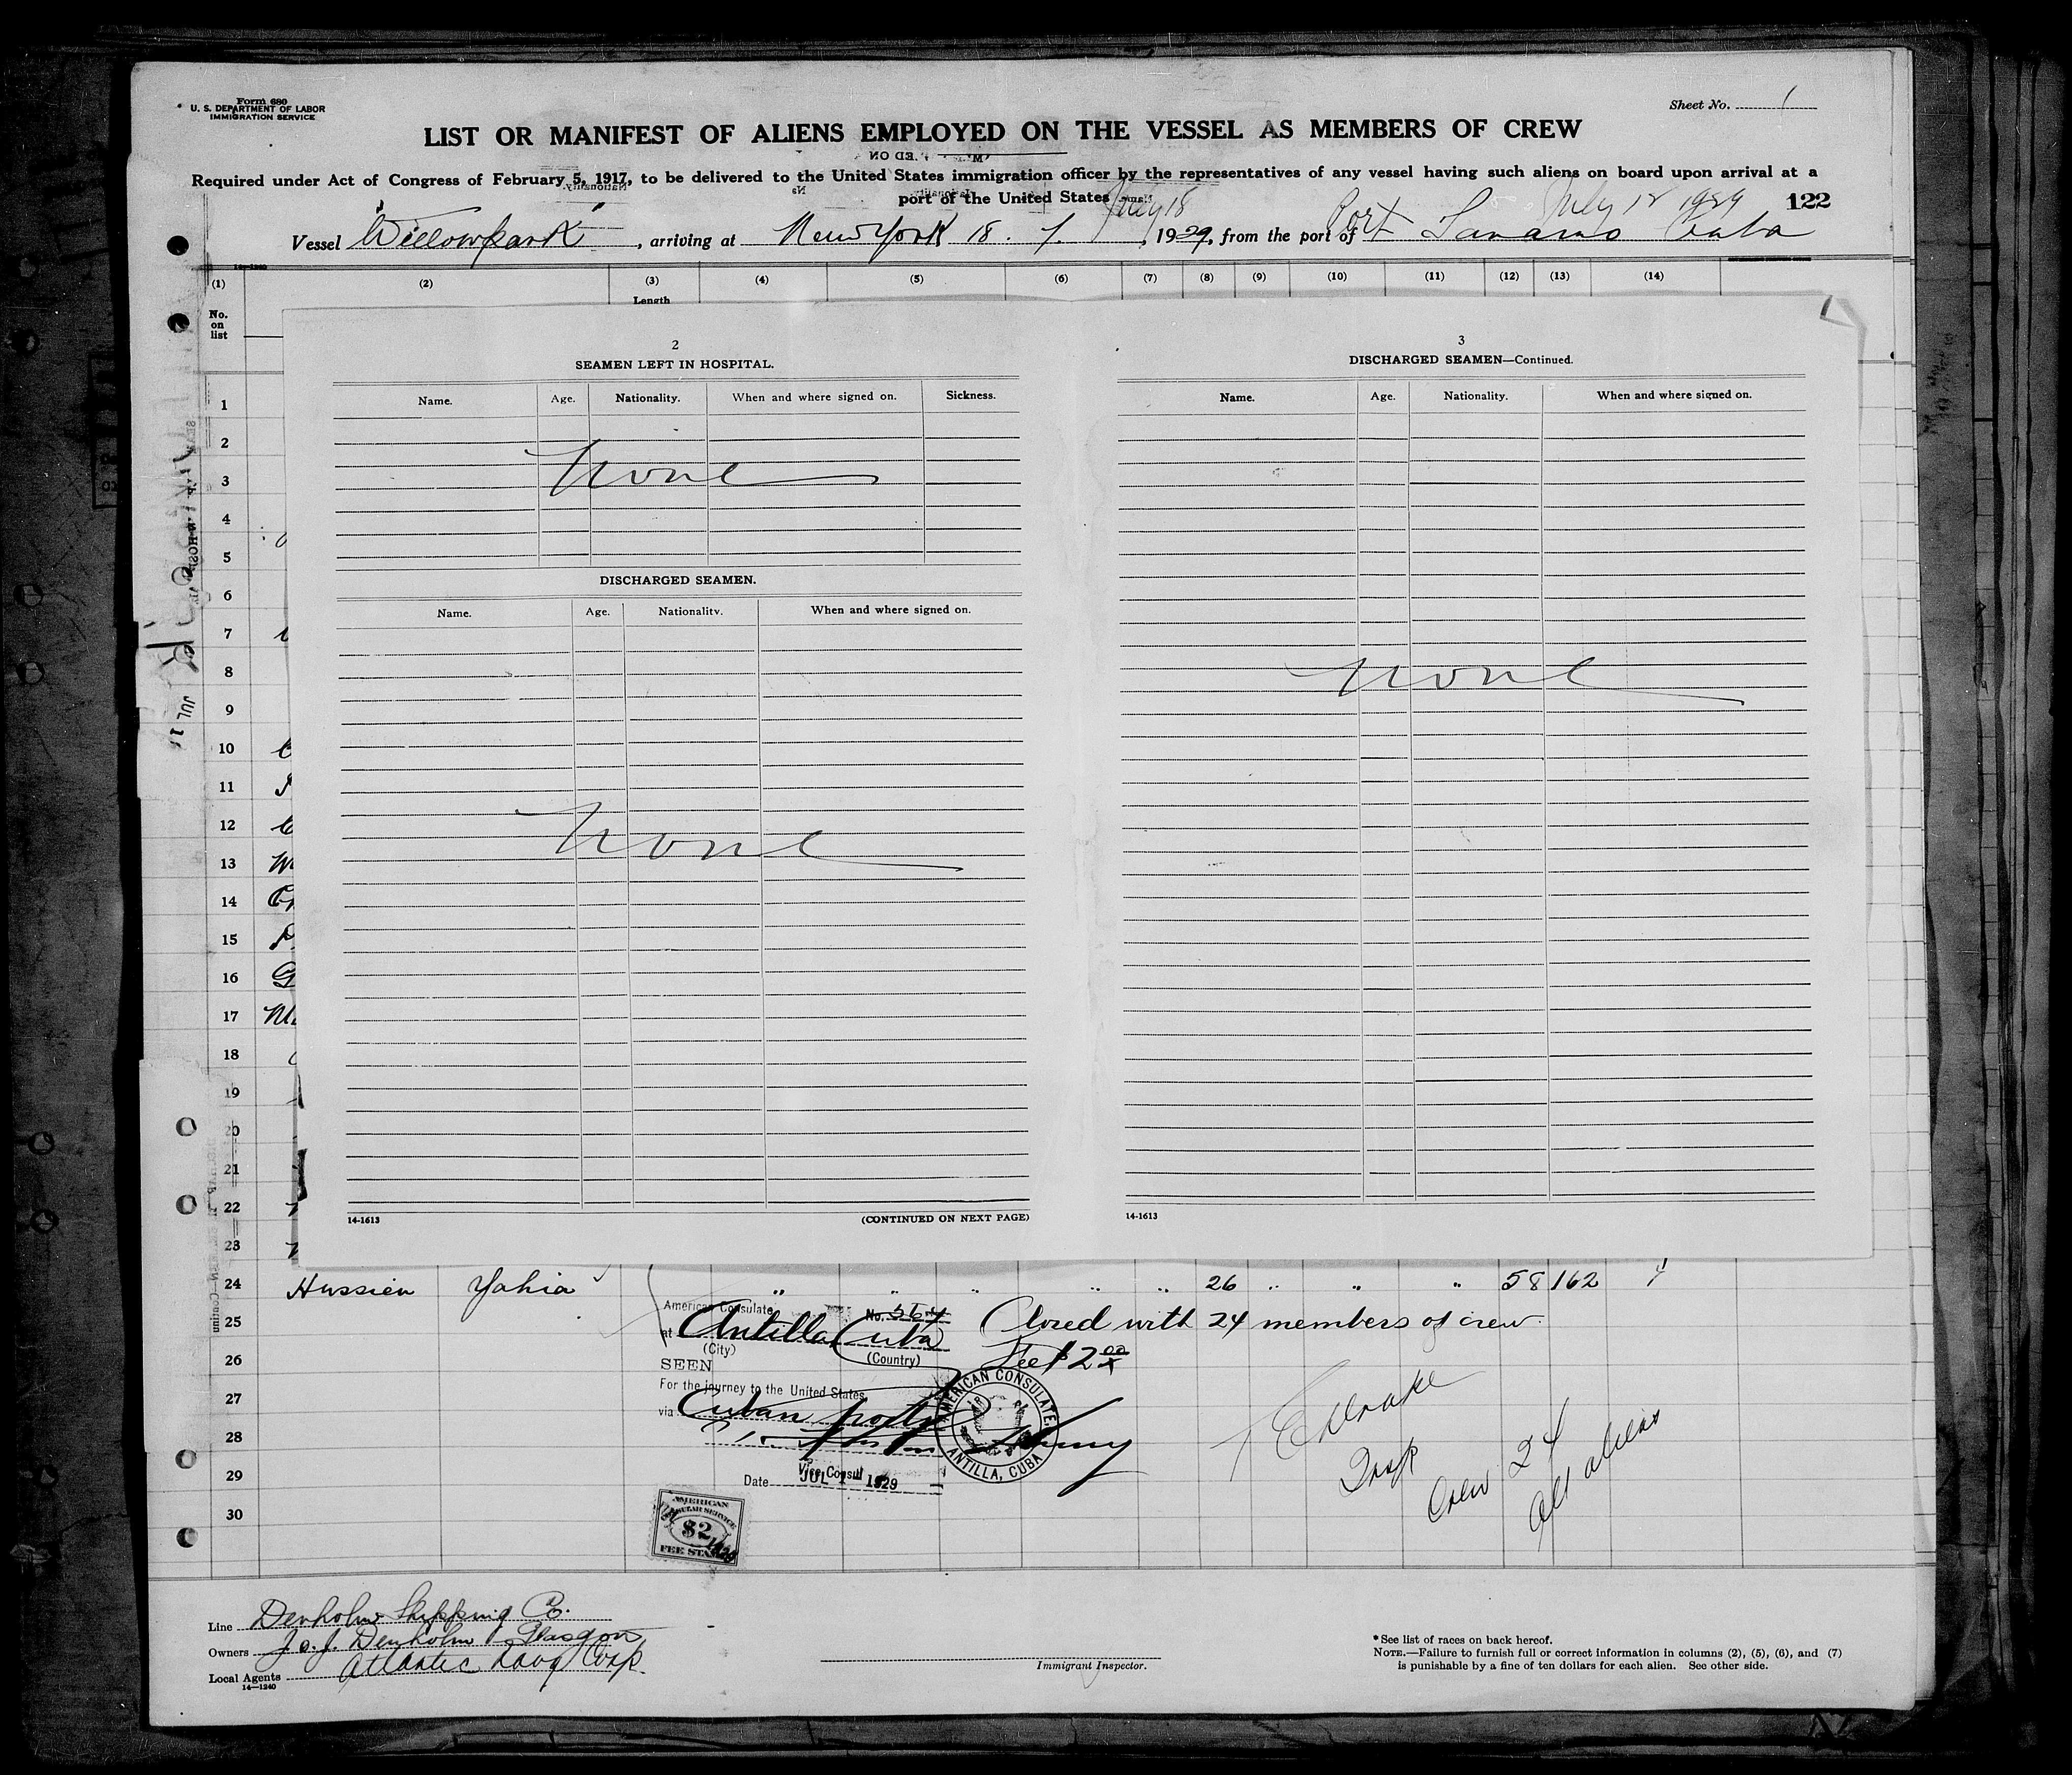 Form 680
U. S. DEPARTMENT OF LABOR
IMMIGRATION SERVICE
Sheet No. 1
LIST OR MANIFEST OF ALIENS EMPLOYED ON THE VESSEL AS MEMBERS OF CREW
Required under Act of Congress of February 5, 1917, to be delivered to the United States immigration officer by the representatives of any vessel having such aliens on board upon arrival at a
port of the United States
July 18
July 18 1929
122
Vessel "Willowpark", arriving at New York 18. 7. 1929, from the port of Port Tanamo Cuba
14-1240
(1) (2) (3) (4) (5) (6) (7) (8) (9) (10) (11) (12) (13) (14)
Length
No. on list
2
SEAMEN LEFT IN HOSPITAL.
Name. Age. Nationality. When and where signed on. Sickness.
None
DISCHARGED SEAMEN.
Name. Age. Nationality. When and where signed on.
None
14-1613
(CONTINUED ON NEXT PAGE)
3
DISCHARGED SEAMEN—Continued.
Name. Age. Nationality. When and where signed on.
None
14-1613
1
2
3
4
5
6
7
8
9
10
11
12
13
14
15
16
17
18
19
20
21
22
23
24 Hussien Yahia " " " " " 26 " " " 58 162
25
26
27
28
29
30
American Consulate No. 564
at Antilla Cuba
(City) (Country)
SEEN
For the journey to the United States
via Cuban ports
Vice Consul
Date JUL 1929
AMERICAN CONSULATE
ANTILLA, CUBA
Closed with 24 members of crew.
Fee $2 00
AMERICAN
CONSULAR SERVICE
$2
FEE STAMP
E Drake
Insp
Crew 24
All aliens
Line Denholm Shipping Co.
Owners J. & J. Denholm Glasgow
Local Agents Atlantic Navg Corp.
14—1240
Immigrant Inspector.
*See list of races on back hereof.
NOTE.—Failure to furnish full or correct information in columns (2), (5), (6), and (7)
is punishable by a fine of ten dollars for each alien. See other side.